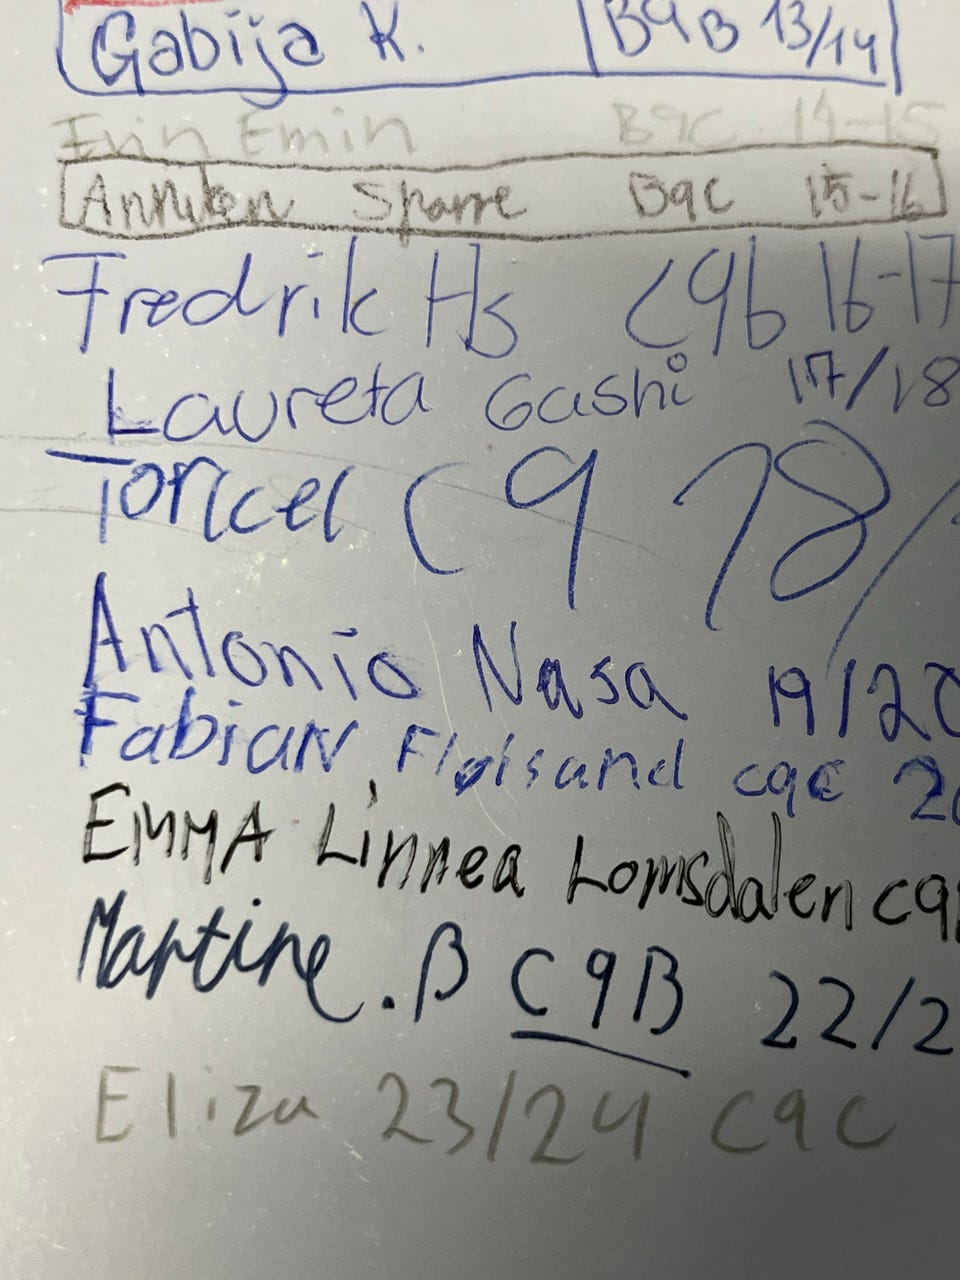 Gabija K. B9B 13/14
Erin Emin B9C 14-15
Anniken Sparre B9C 15-16
Fredrik Hs C9b 16-17
Laureta Gashi 17/18
C9 18/
Antonio Nasa 19/20
Fabian Floisand c9c 20
EMMA Linnea Lomsdalen C9
Martine .B C9B 22/2
Eliza 23/24 C9C